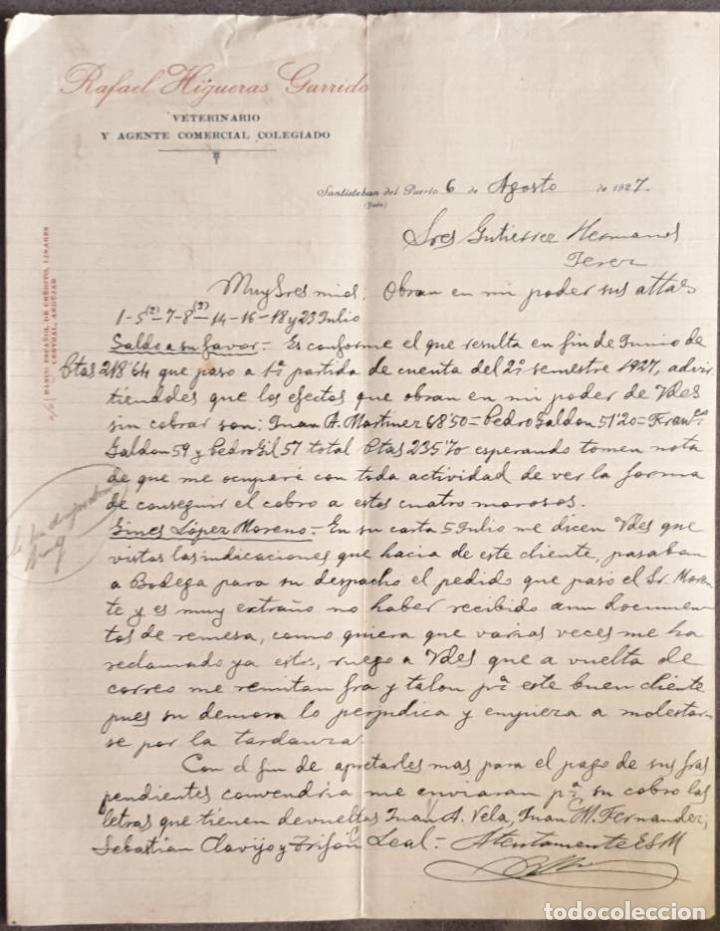 Rafael Higueras Garrido
VETERINARIO
Y AGENTE COMERCIAL COLEGIADO
Santisteban del Puerto 6 de Agosto de 1927.
(Jaén)
Sres Gutierrez Hermanos
Jerez
Muy Sres mios: Obran en mi poder sus attas
1-5(2)-7-8(2)-14-16-18 y 23 Julio
Saldo a su favor.- Es conforme el que resulta en fin de Junio de
Ptas 218'64 que paso a 1ª partida de cuenta del 2º semestre 1927, advir
tiendoles que los efectos que obran en mi poder de Vdes
sin cobrar son: Juan A. Martinez 68'50= Pedro Galdon 51'20= Franco
Galdon 59 y Pedro Gil 57 total Ptas 235'70 esperando tomen nota
de que me ocuparé con toda actividad de ver la forma
de conseguir el cobro a estos cuatro morosos.
Gines López Moreno.- En su carta 5 Julio me dicen Vdes que
vistas las indicaciones que hacia de este cliente, pasaban
a Bodega para su despacho el pedido que pasó el Sr. Moran
te y es muy extraño no haber recibido aun documen
tos de remesa, como quiera que varias veces me ha
reclamado ya esto, ruego a Vdes que a vuelta de
correo me remitan fra y talon pª este buen cliente
pues su demora lo perjudica y empieza a molestar
se por la tardanza.
Con el fin de apretarles mas para el pago de sus fras
pendientes convendria me enviaran pª su cobro las
letras que tienen devueltas Juan A. Vela, Juan M. Fernandez,
Sebastian Clavijo y Trifón Leal.- Atentamente ESM
BANCO ESPAÑOL DE CRÉDITO, LINARES
CENTRAL, ANDÚJAR
todocoleccion